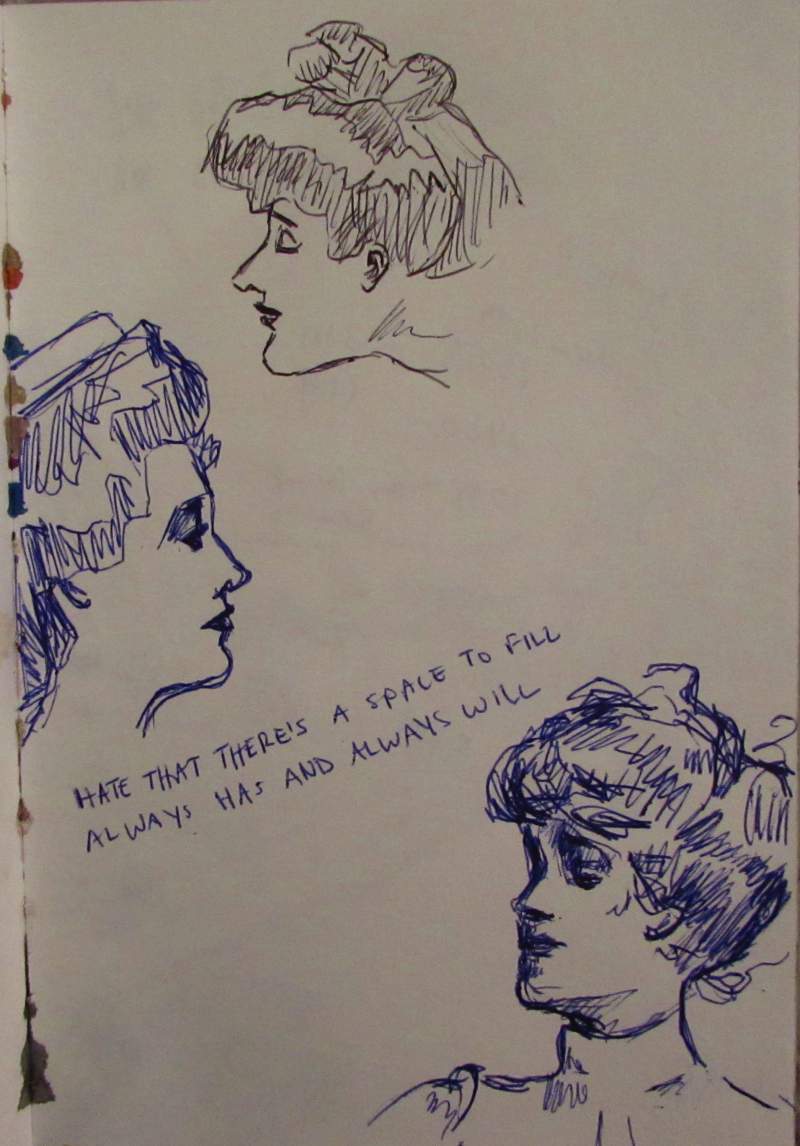 HATE THAT THERE'S A SPACE TO FILL
ALWAYS HAS AND ALWAYS WILL